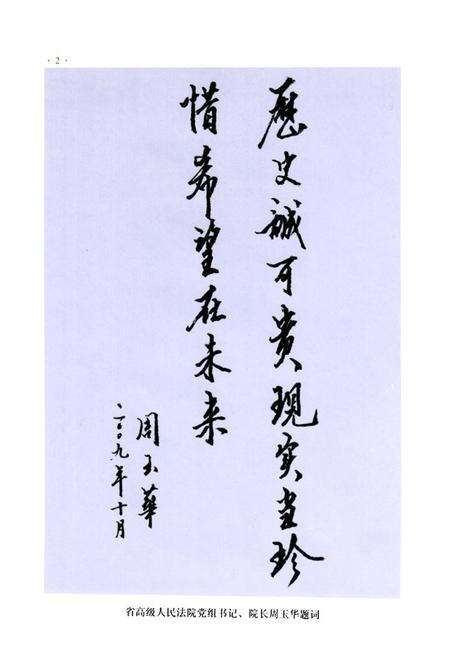 · 2 ·
歷史誠可贵現实当珍
惜希望在未来
周玉華
二〇〇九年十月
省高级人民法院党组书记、院长周玉华题词